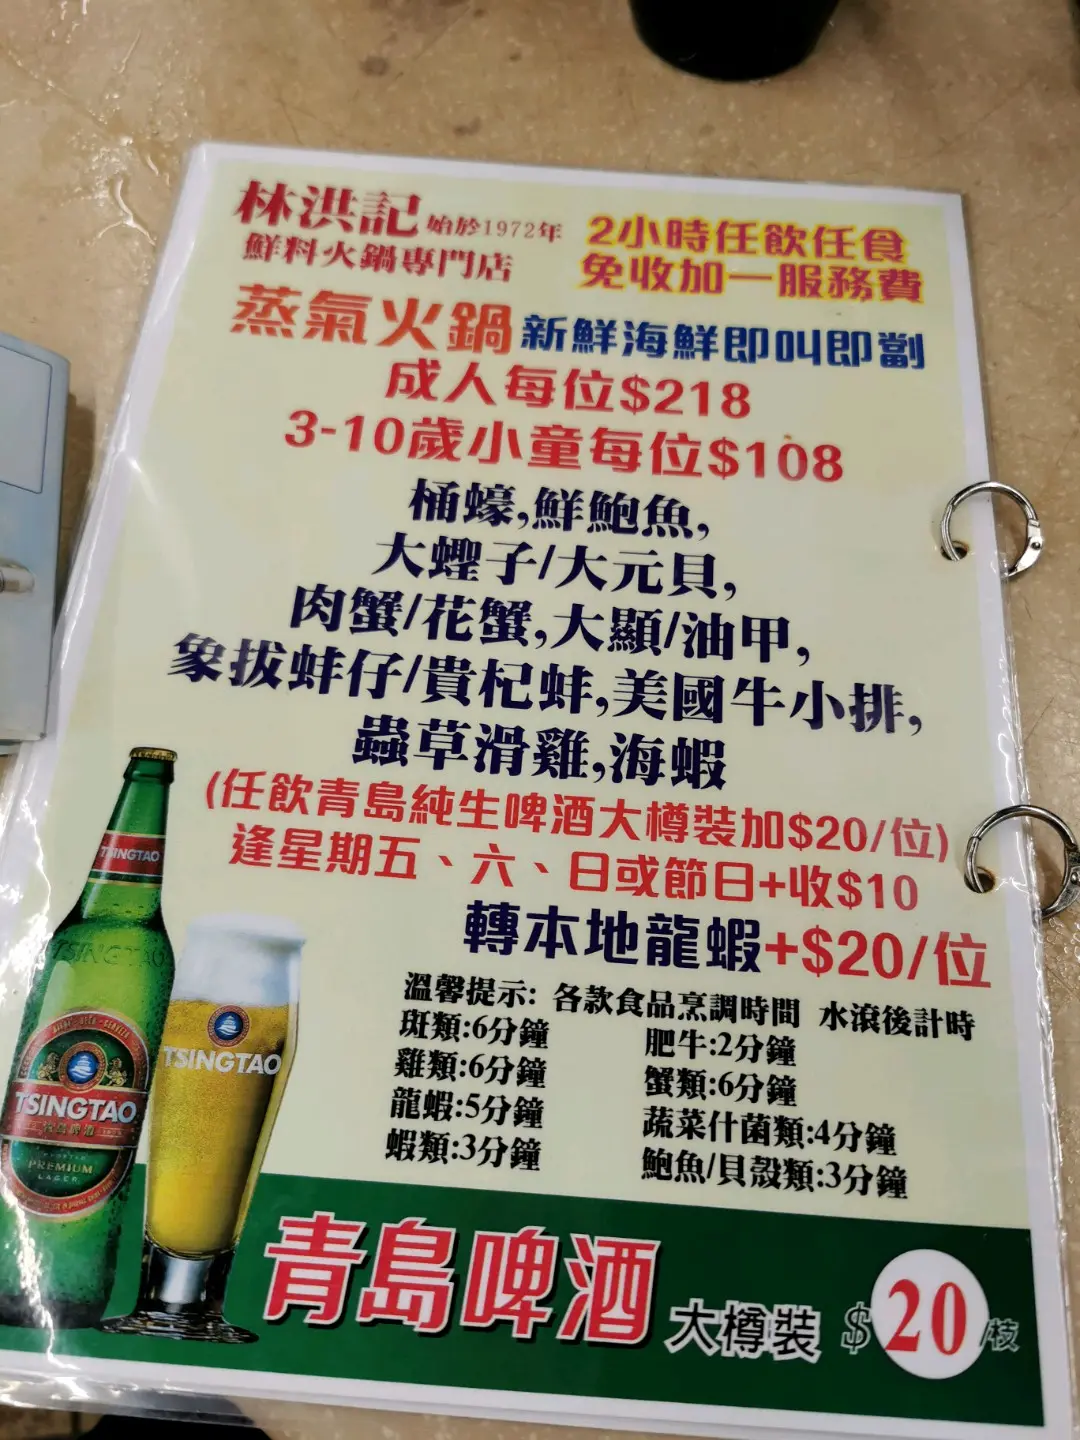 林洪記 始於1972年
鮮料火鍋專門店
2小時任飲任食
免收加一服務費
蒸氣火鍋 新鮮海鮮即叫即劏
成人每位$218
3-10歲小童每位$108
桶蠔,鮮鮑魚,
大蟶子/大元貝,
肉蟹/花蟹,大顯/油甲,
象拔蚌仔/貴杞蚌,美國牛小排,
蟲草滑雞,海蝦
(任飲青島純生啤酒大樽裝加$20/位)
逢星期五、六、日或節日+收$10
轉本地龍蝦+$20/位
溫馨提示: 各款食品烹調時間 水滾後計時
斑類:6分鐘 肥牛:2分鐘
雞類:6分鐘 蟹類:6分鐘
龍蝦:5分鐘 蔬菜什菌類:4分鐘
蝦類:3分鐘 鮑魚/貝殼類:3分鐘
TSINGTAO
TSINGTAO
TSINGTAO
TSINGTAO
青島啤酒
PREMIUM
LAGER
青島啤酒 大樽裝 $20/枝